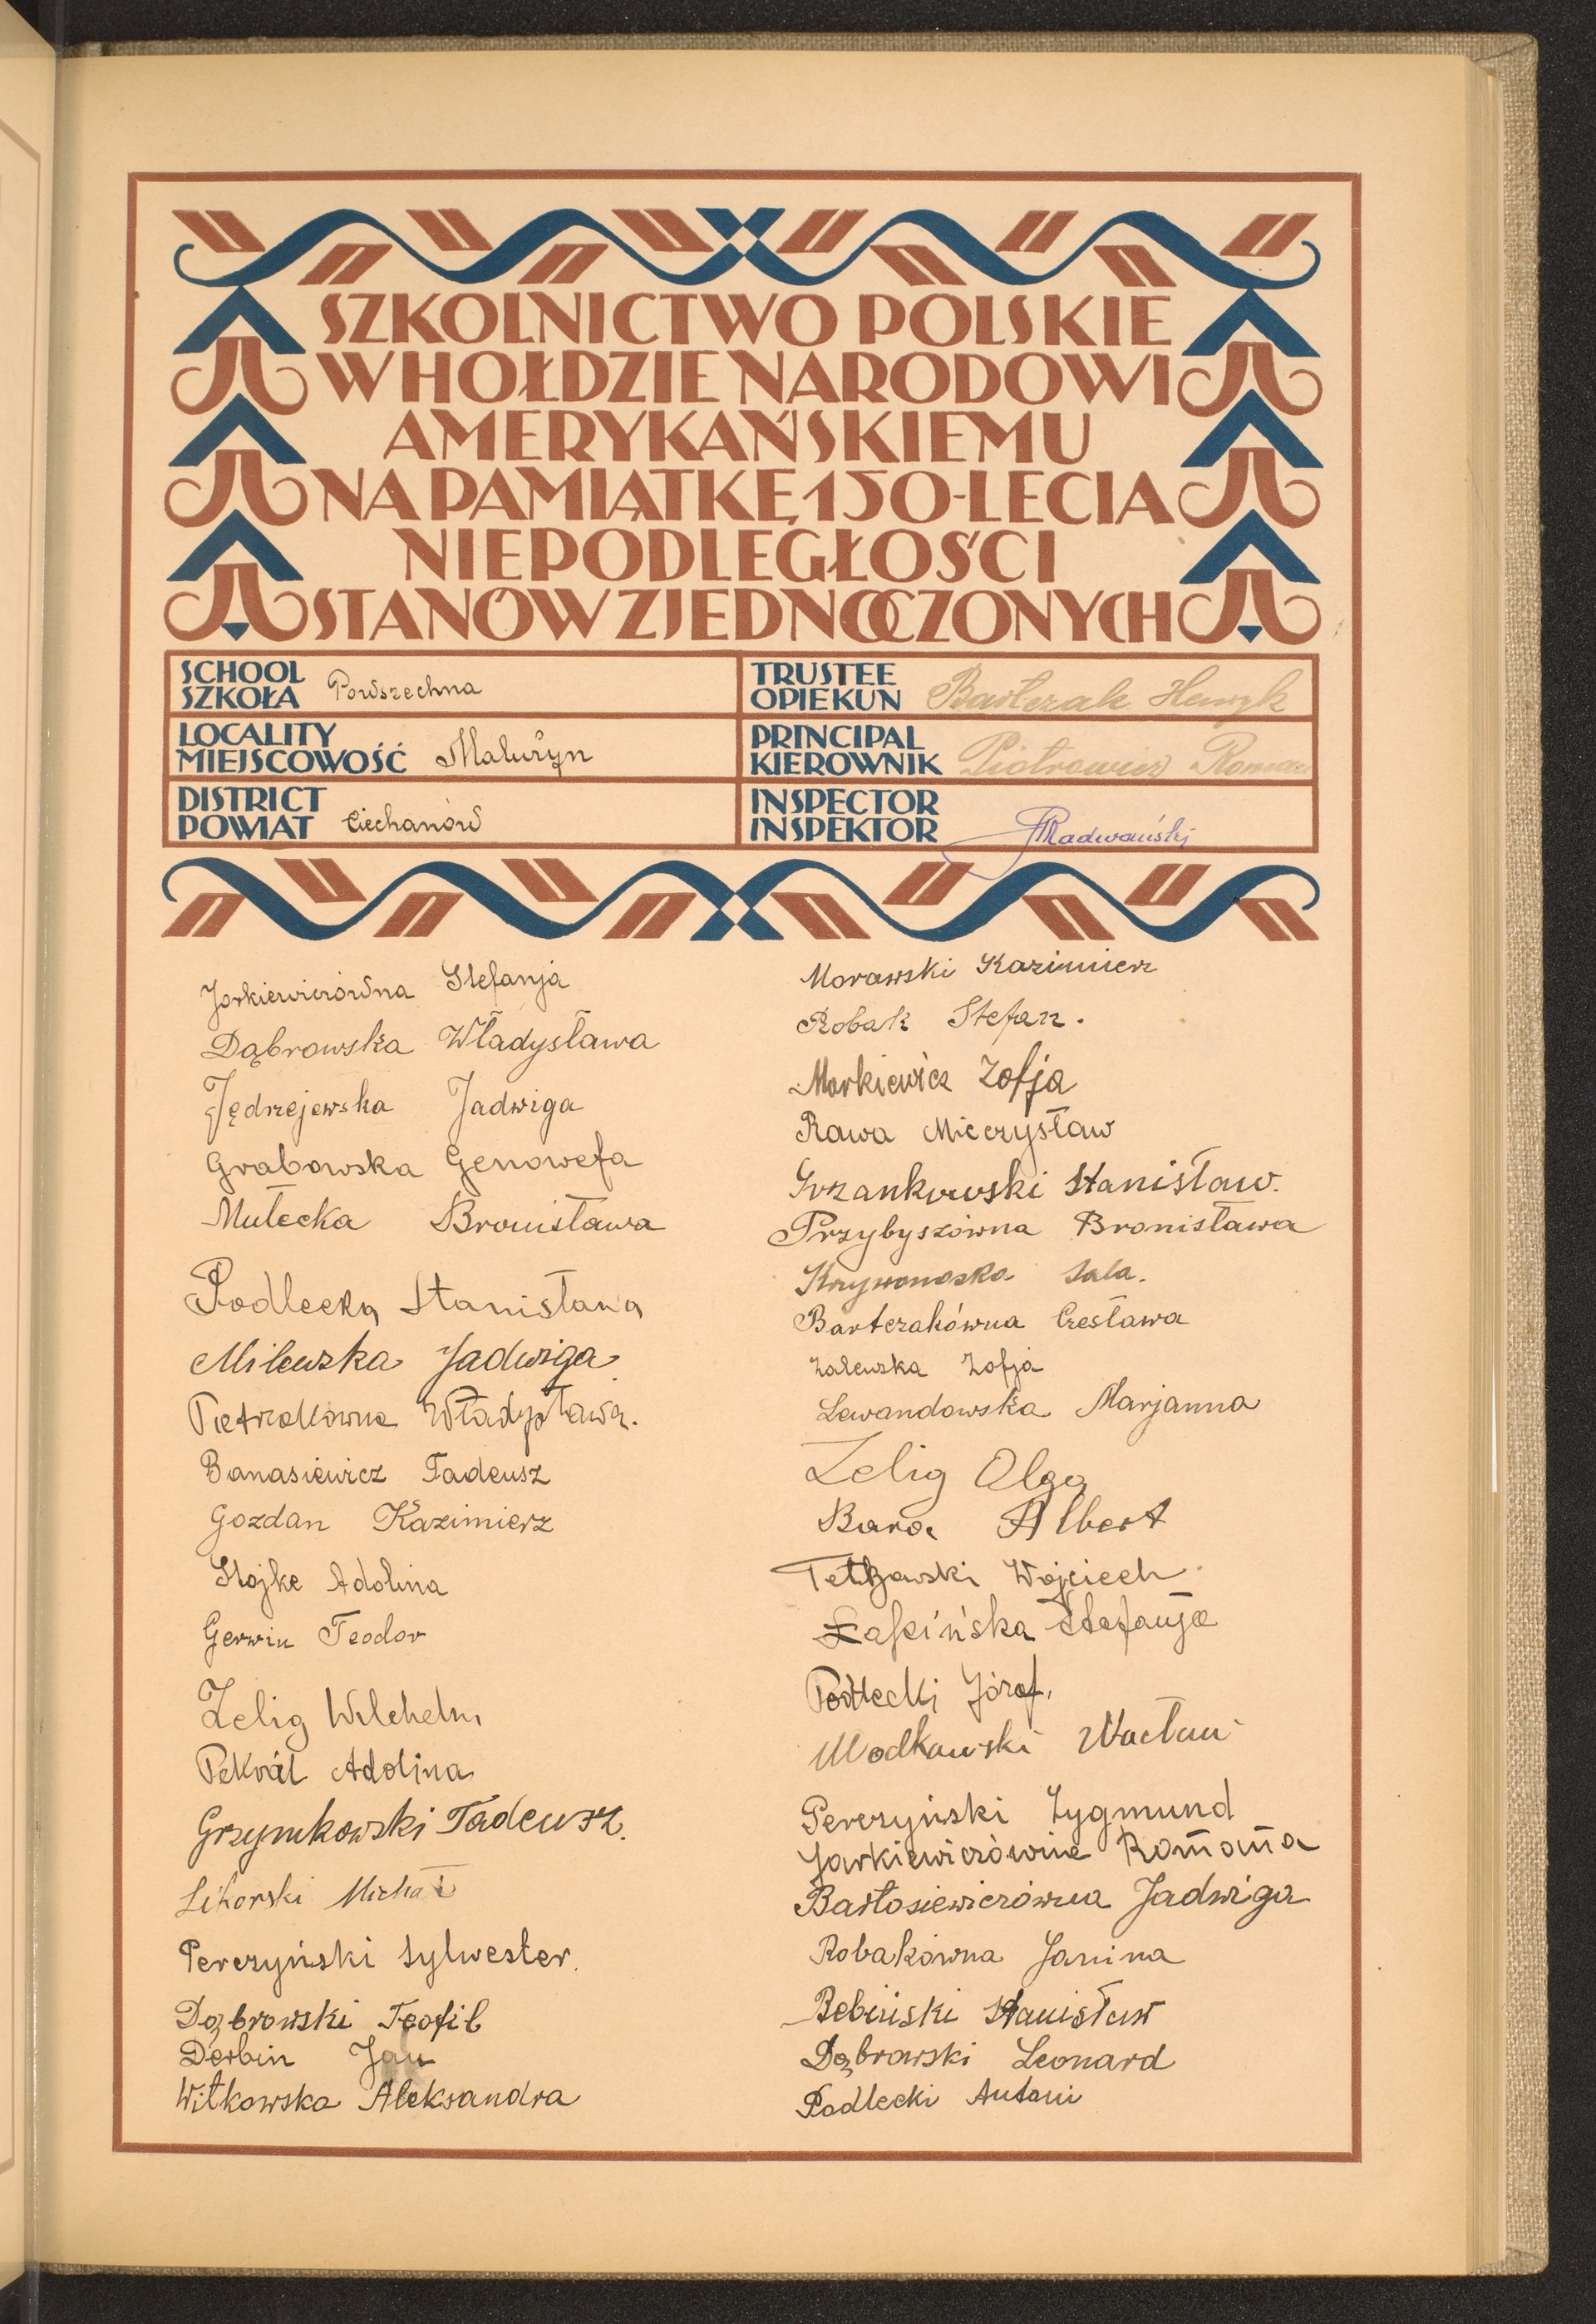 SZKOLNICTWO POLSKIE
W HOŁDZIE NARODOWI
AMERYKAŃSKIEMU
NA PAMIĄTKĘ 150-LECIA
NIEPODLEGŁOŚCI
STANÓW ZJEDNOCZONYCH
SCHOOL
SZKOŁA Powszechna
LOCALITY
MIEJSCOWOŚĆ Malużyn
DISTRICT
POWIAT Ciechanów
TRUSTEE
OPIEKUN Bartczak Henryk
PRINCIPAL
KIEROWNIK Piotrowicz Roman
INSPECTOR
INSPEKTOR Radwański
Jarkiewiczówna Stefanja
Dąbrowska Władysława
Jędrzejewska Jadwiga
Grabowska Genowefa
Małecka Bronisława
Podlecka Stanisława
Milewska Jadwiga
Pietrzakówna Władysława.
Banasiewicz Tadeusz
Gozdan Kazimierz
Stojke Adolina
Gerwin Teodor
Zelig Wilchelm
Pekról Adolina
Grzymkowski Tadeusz.
Sikorski Michał
Perczyński Sylwester.
Dąbrowski Teofil
Derbin Jan
Witkowska Aleksandra
Morawski Kazimierz
Robak Stefan.
Markiewicz Zofja
Rawa Mieczysław
Grzankowski Stanisław.
Przybyszówna Bronisława
Krzywonoska Sala.
Bartczakówna Czesława
Zalewska Zofja
Lewandowska Marjanna
Zelig Olga
Albert
Wojciech
Łapińska Stefanja
Podlecki Józef.
Modkowski Wacław
Perczyński Zygmund
Jarkiewiczówna Romana
Bartosiewiczówna Jadwiga
Robakówna Janina
Bebiński Stanisław
Dąbrowski Leonard
Podlecki Antoni